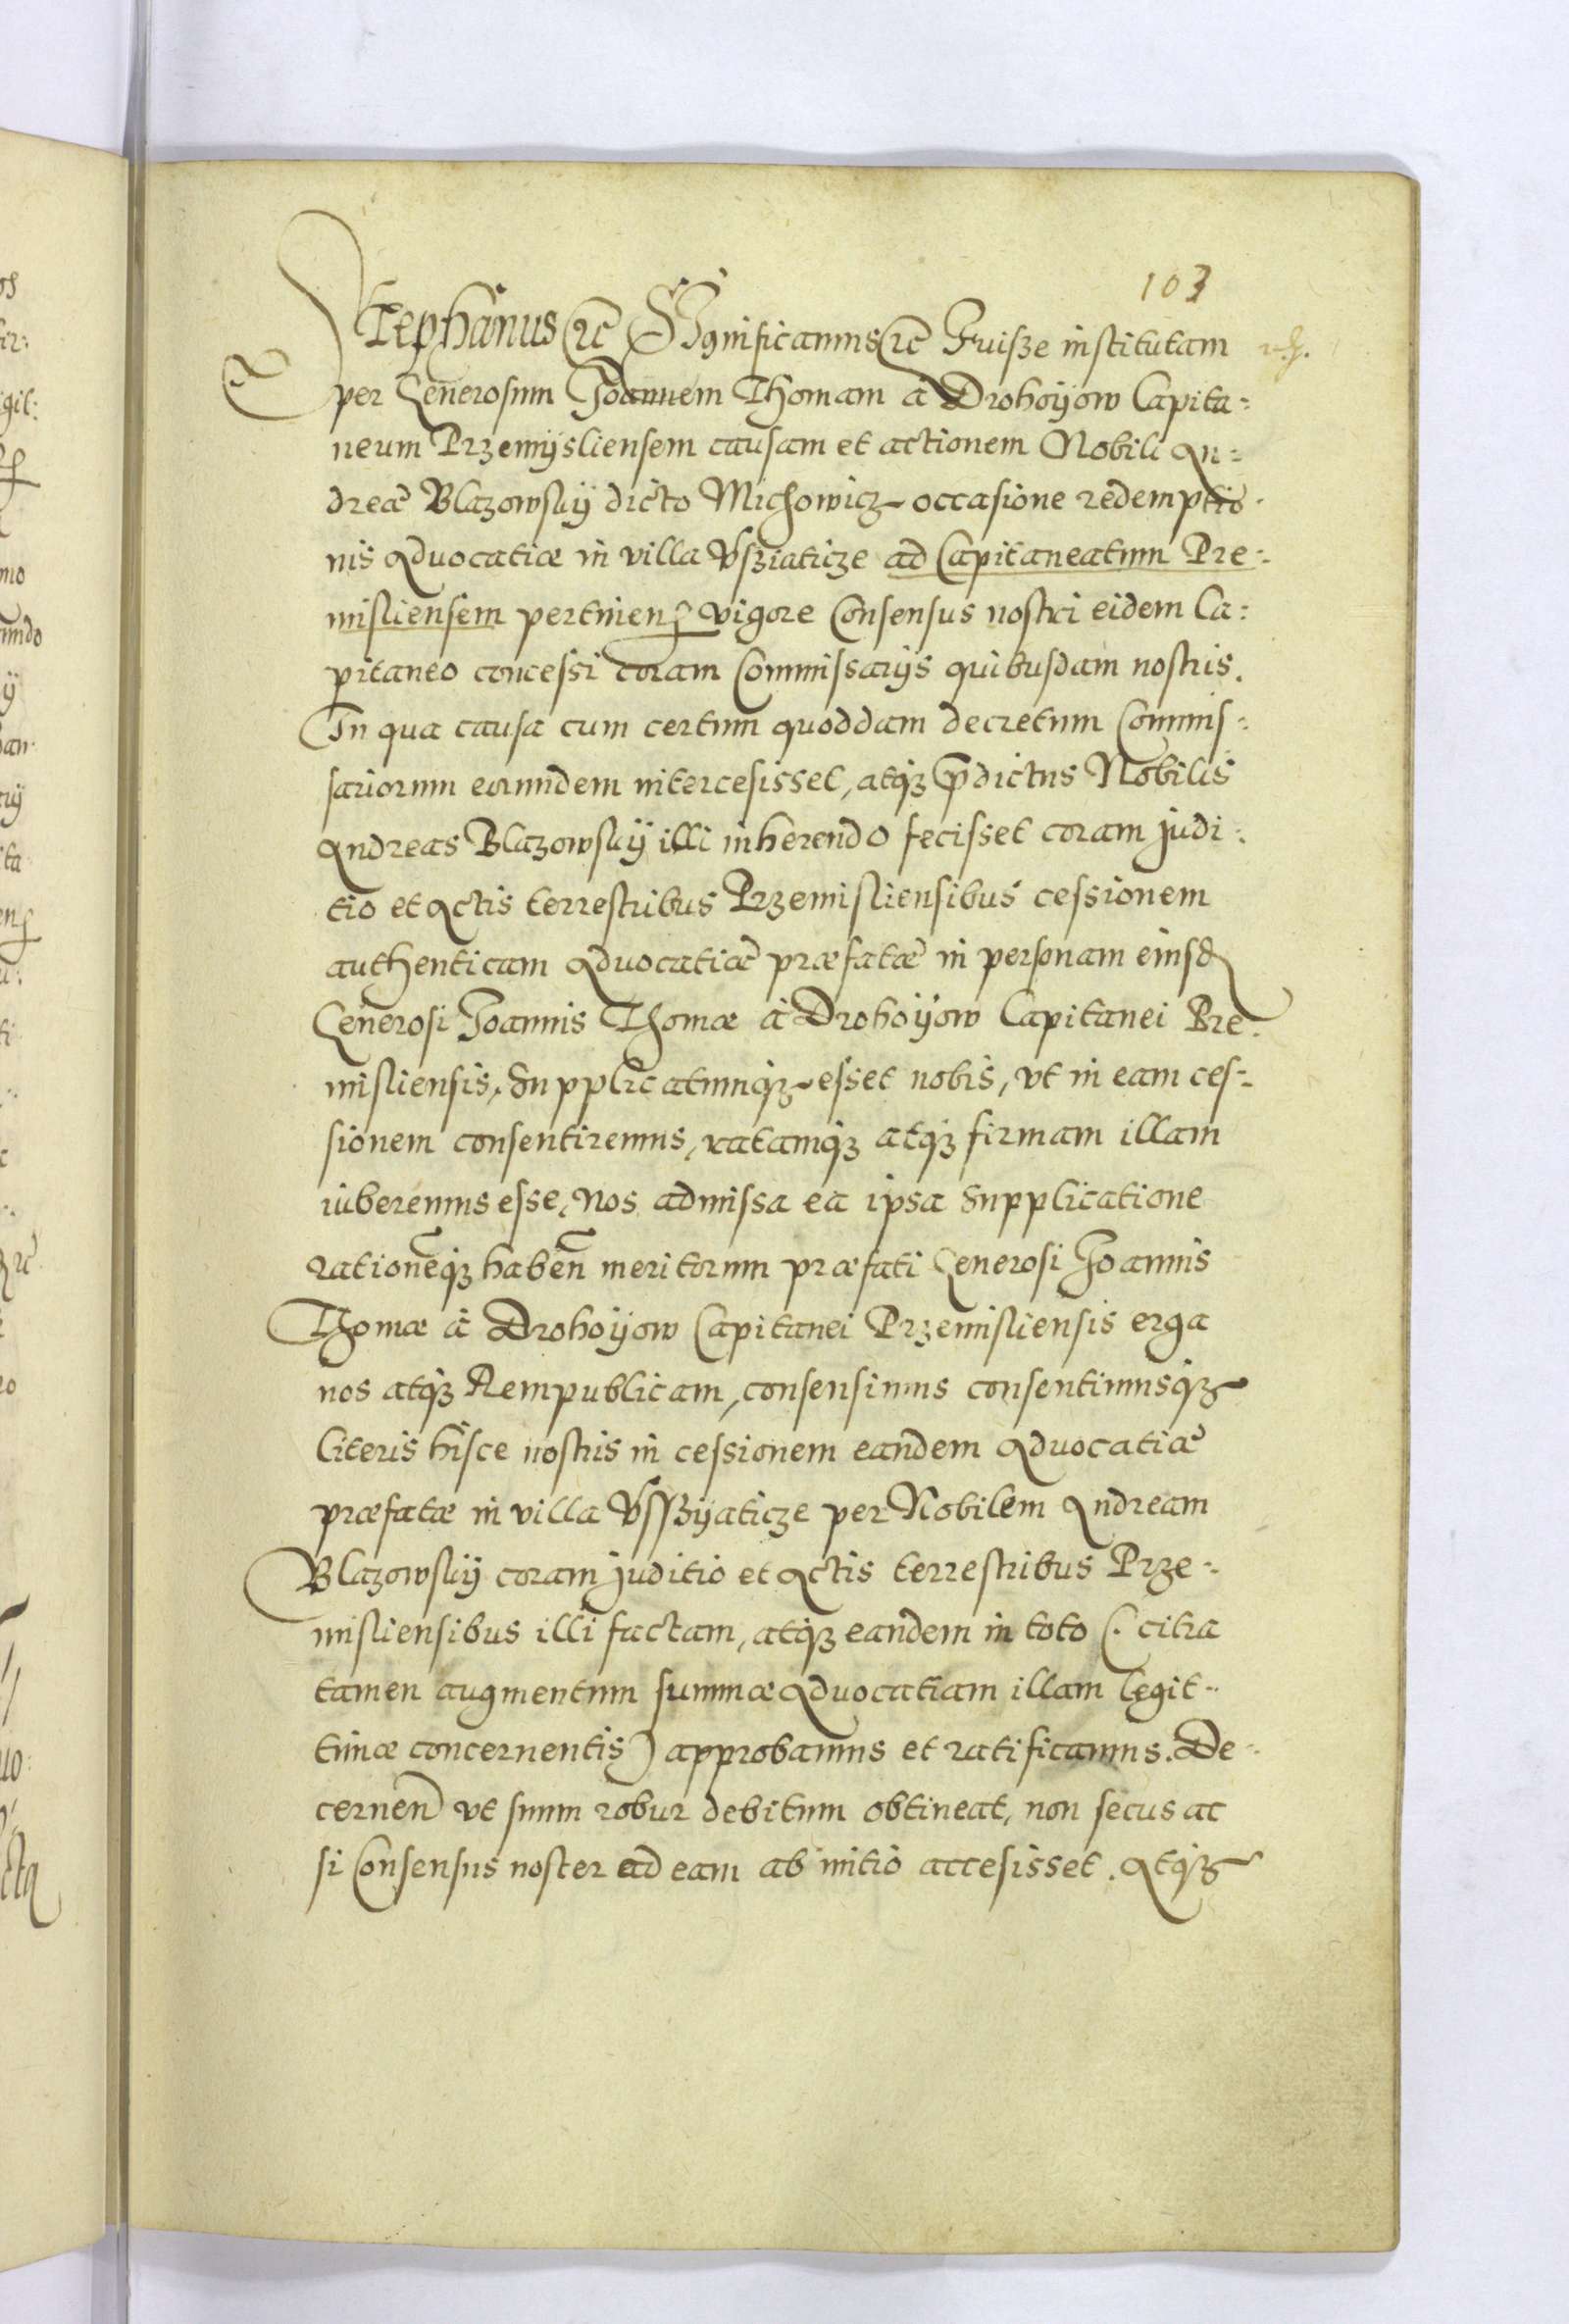 103
Stephanus etc Significamus etc Fuisze institutam
per Generosum Joannem Thomam à Drohoyow Capita=
neum Przemysliensem causam et actionem Nobili An=
dreae Blazowsky dicto Michowicz occasione redemptio
nis Advocatiae in villa Vsziaticze ad Capitaneatum Pre=
misliensem pertinen. vigore Consensus nostri eidem Ca:
pitaneo concessi coram Commissarijs quibusdam nostris.
In qua causa cum certum quoddam decretum Commis=
sariorum eorundem intercesisset, atq3 p̄dictus Nobilis
Andreas Blazowsky illi inherendo fecisset coram judi:
tio et Actis terrestribus Przemisliensibus cessionem
authenticam Advocatiae praefatae in personam eiusd
Generosi Joannis Thomae à Drohoyow Capitanei Pre:
misliensis, Supplicatumq3 esset nobis, vt in eam ces=
sionem consentiremus, ratamq3 atq3 firmam illam
iuberemus esse, Nos admissa ea ipsa Supplicatione
rationeq3 haben̄ meritorum praefati Generosi Joannis
Thomae à Drohoyow Capitanei Przemisliensis erga
nos atq3 Rempublicam, consensimus consentimusq3
literis hisce nostris in cessionem eandem Advocatiae
praefatae in villa Vsszyaticze per Nobilem Andream
Blazowsky coram juditio et Actis terrestribus Prze=
misliensibus illi factam, atq3 eandem in toto (. citra
tamen augmentum summae Advocatiam illam legit=
timae concernentis) approbamus et ratificamus. De=
cernen̄ vt suum robur debitum obtineat, non secus ac
si Consensus noster ad eam ab initio accesisset. Atq3